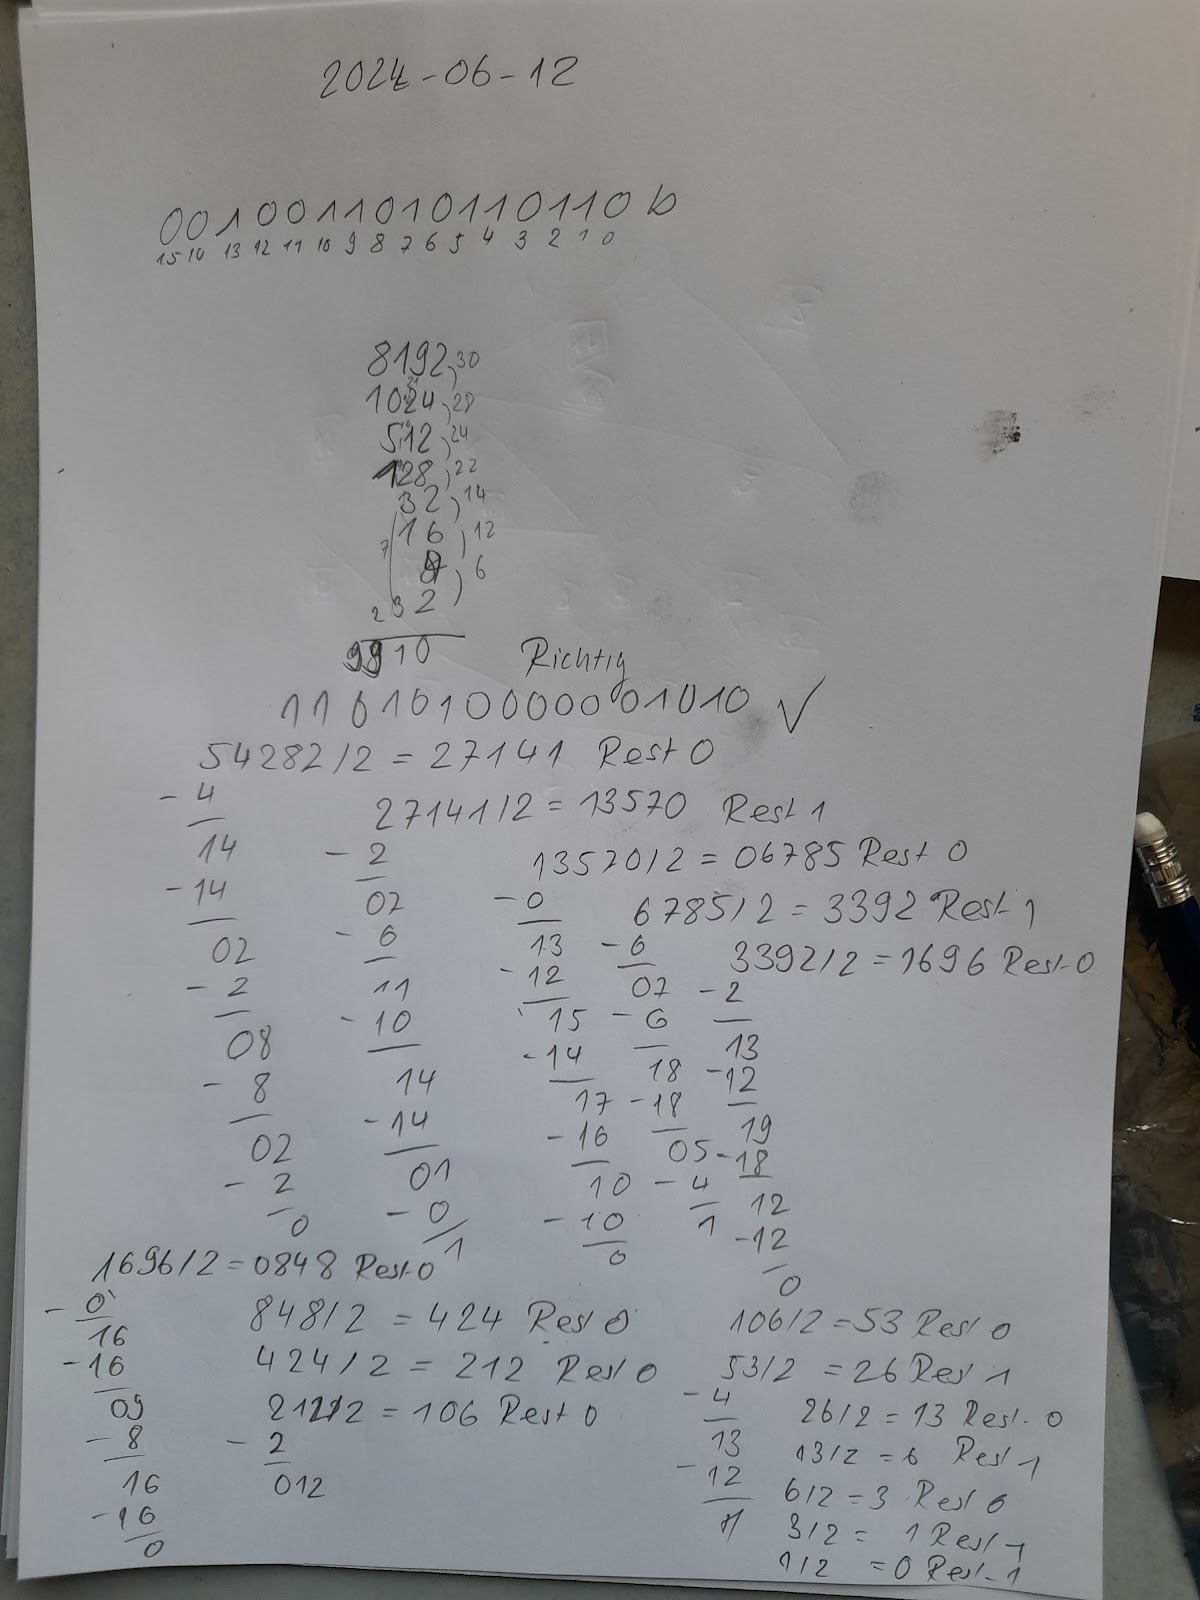 2024-06-12
0010011010110110 b
15 14 13 12 11 10 9 8 7 6 5 4 3 2 1 0
8192 ) 30
1024 ) 28
512 ) 24
128 ) 22
32 ) 14
16 ) 12
7
4 ) 6
2
2 3
9910 Richtig
1101010000001010 ✓
54282/2 = 27141 Rest 0
- 4 27141/2 = 13570 Rest 1
14 - 2 13570/2 = 06785 Rest 0
- 14 07 - 0 6785/2 = 3392 Rest 1
02 - 6 13 - 6 3392/2 = 1696 Rest 0
- 2 11 - 12 07 - 2
08 - 10 15 - 6 13
- 8 14 - 14 18 - 12
02 - 14 17 - 18 19
- 2 01 - 16 05 - 18
0 - 0 10 - 4 12
1 - 10 1 - 12
0 0
1696/2 = 0848 Rest 0
- 0 848/2 = 424 Rest 0 106/2 = 53 Rest 0
16
- 16 424/2 = 212 Rest 0 53/2 = 26 Rest 1
09 212/2 = 106 Rest 0 - 4 26/2 = 13 Rest 0
- 8 - 2 13 13/2 = 6 Rest 1
16 012 - 12 6/2 = 3 Rest 0
- 16 1 3/2 = 1 Rest 1
0 1/2 = 0 Rest 1